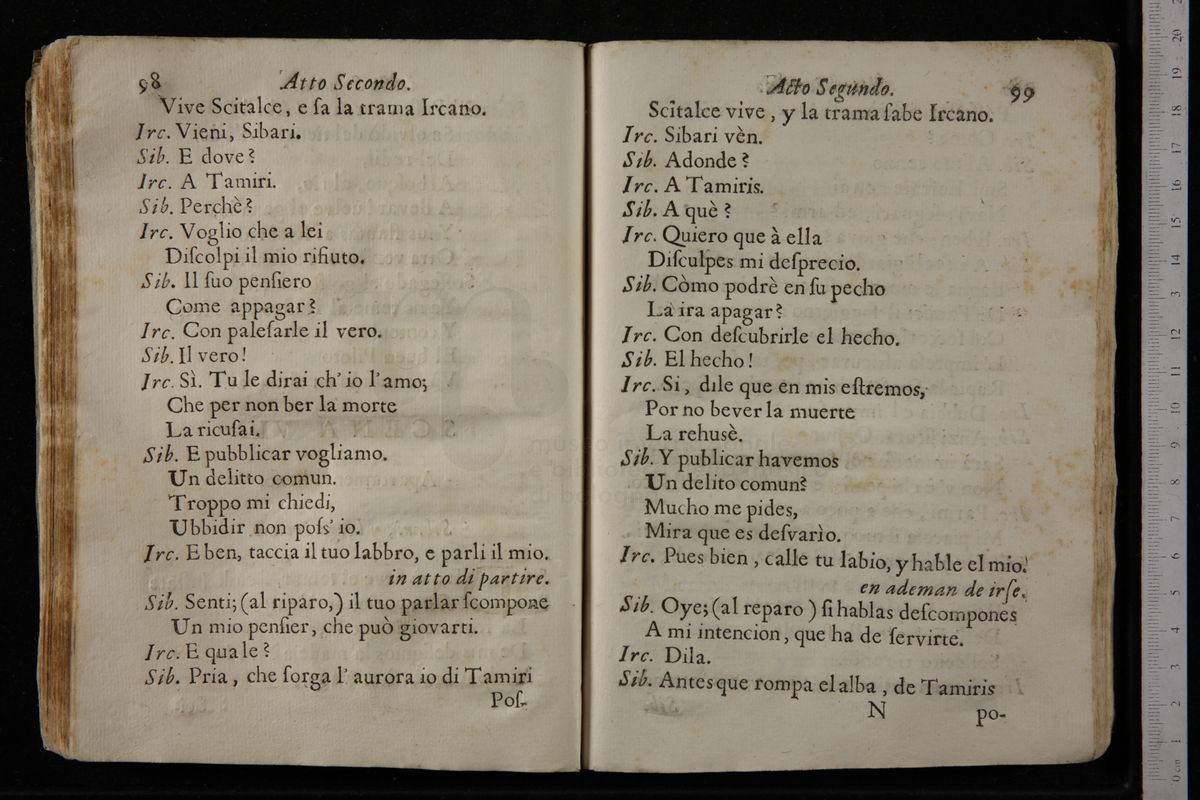 98 Atto Secondo.
Vive Scitalce, e ſa la trama Ircano.
Irc. Vieni, Sibari.
Sib. E dove?
Irc. A Tamiri.
Sib. Perchè?
Irc. Voglio che a lei
Diſcolpi il mio rifiuto.
Sib. Il ſuo penſiero
Come appagar?
Irc. Con paleſarle il vero.
Sib. Il vero!
Irc. Sì. Tu le dirai ch' io l'amo;
Che per non ber la morte
La ricuſai.
Sib. E pubblicar vogliamo.
Un delitto comun.
Troppo mi chiedi,
Ubbidir non poſs' io.
Irc. E ben, taccia il tuo labbro, e parli il mio.
in atto di partire.
Sib. Senti; (al riparo,) il tuo parlar ſcompone
Un mio penſier, che può giovarti.
Irc. E quale?
Sib. Pria, che ſorga l' aurora io di Tamiri
Poſ-
Acto Segundo. 99
Scitalce vive, y la trama ſabe Ircano.
Irc. Sibari vèn.
Sib. Adonde?
Irc. A Tamiris.
Sib. A què?
Irc. Quiero que à ella
Diſculpes mi deſprecio.
Sib. Còmo podrè en ſu pecho
La ira apagar?
Irc. Con deſcubrirle el hecho.
Sib. El hecho!
Irc. Si, dile que en mis eſtremos,
Por no bever la muerte
La rehusè.
Sib. Y publicar havemos
Un delito comun?
Mucho me pides,
Mira que es deſvarìo.
Irc. Pues bien, calle tu labio, y hable el mio.
en ademan de irſe.
Sib. Oye; (al reparo) ſi hablas deſcompones
A mi intencion, que ha de ſervirte.
Irc. Dila.
Sib. Antes que rompa el alba, de Tamiris
N po-